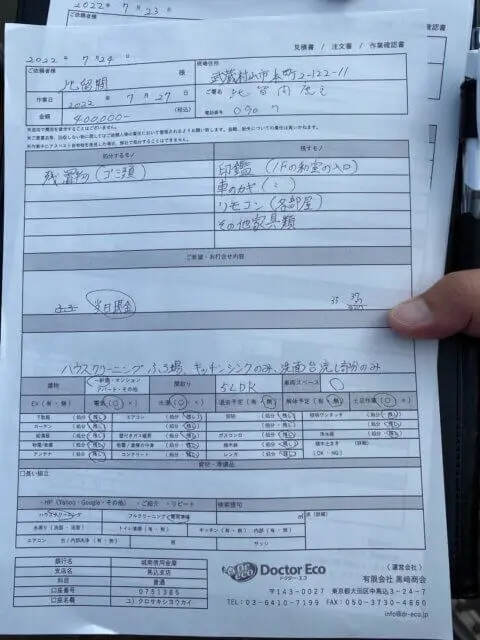 2022年7月23日
見積書 / 注文書 / 作業確認書
2022年7月24日
ご依頼者様
現場住所
比留間 様
武蔵村山市本町2-122-11
作業日 2022年7月27日
ご署名
金額 400,000- (税込)
電話番号 090
処分するモノ
残すモノ
残置物(ゴミ類)
印鑑(1Fの和室の入口)
車のカギ(〃)
リモコン(各部屋)
その他家具類
ご希望・お打合せ内容
当日現金
ハウスクリーニング ふろ場、キッチンシンクのみ、洗面台流し部分のみ
建物
一軒家・マンション アパート・その他
間取り
5LDK
車両スペース
EV(有・無)
電気(○ ×)
水道(○ ×)
過去予定(有・無)
解体予定(有・無)
土足作業(○ ×)
下駄箱 (処分 残し)
エアコン (処分 残し)
照明 (処分 残し)
照明ワンタッチ (処分 残し)
カーテン (処分 残し)
給湯器 (処分 残し)
壁付きガス暖房 (処分 残し)
ガスコンロ (処分 残し)
浄水器 (処分 残し)
物置/倉庫 (処分 残し)
植木鉢 (処分 残し)
アンテナ (処分 残し)
コンクリート (処分 残し)
レンガ (処分 残し)
(OK・NG)
資材・準備品
・HP(Yahoo・Google・その他) ・ご紹介 ・リピート
検索語句
ハウスクリーニング
フルクリーニング・簡易清掃
㎡
水廻り(洗面・浴室)
トイレ清掃(有・無)
キッチン(有・無) 内部(有・無)
エアコン 台/内部洗浄(有・無)
窓
サッシ
銀行名 城南信用金庫
支店名 馬込支店
科目 普通
口座番号 0751385
口座名義 ユ)クロサキショウカイ
Dr.eco
Doctor Eco
ドクターエコ
(運営会社)
有限会社 黒崎商会
〒143-0027 東京都大田区中馬込3-24-7
TEL:03-6410-7199 FAX:050-3730-4850
info@dr-eco.jp